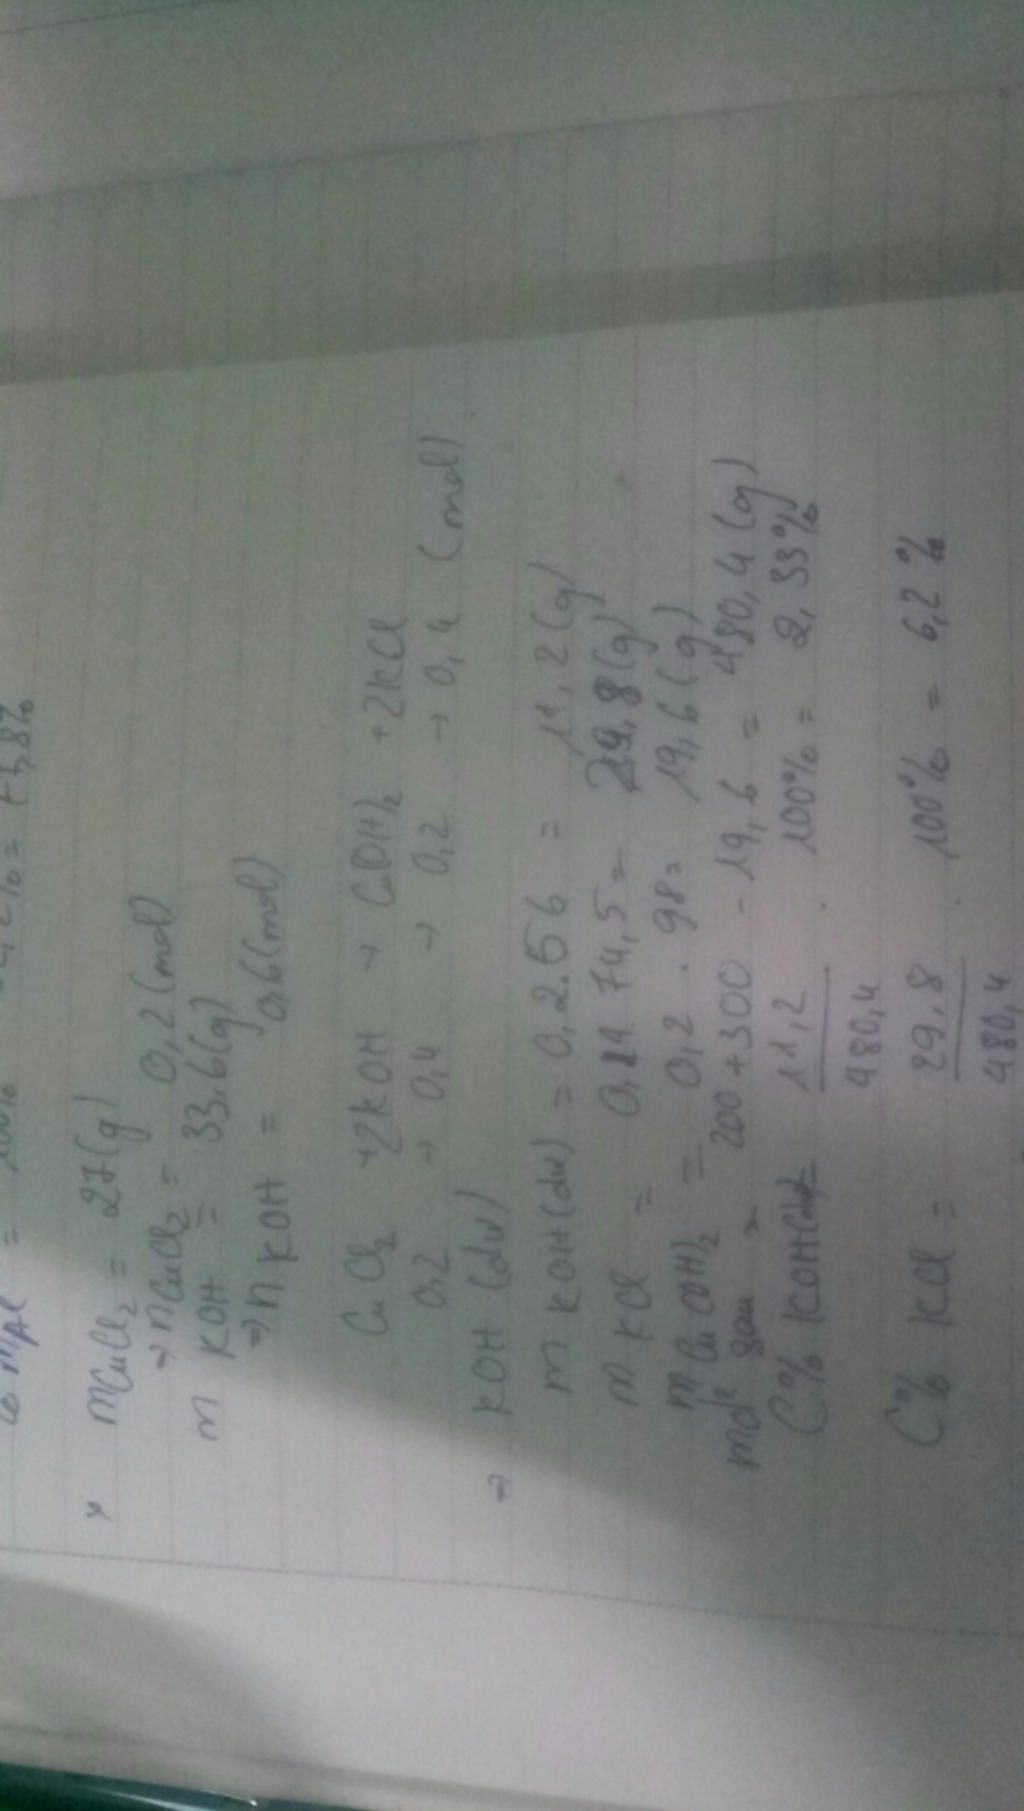 = 100%
* mCuCl2 = 27(g)
→ nCuCl2 = 0,2(mol)
m KOH = 33,6(g)
→ n KOH = 0,6(mol)
CuCl2 +2KOH → Cu(OH)2 +2KCl
0,2 → 0,4 → 0,2 → 0,4 (mol)
→ KOH (dư)
m KOH(dư) = 0,2.56 = 11,2(g)
m KCl = 0,4.74,5= 29,8(g)
m Cu(OH)2 = 0,2 . 98= 19,6(g)
md² sau = 200+300 -19,6 = 480,4(g)
C% KOH(dư)= 11,2/480,4 . 100% = 2,33%
C% KCl = 29,8/480,4 . 100% = 6,2%